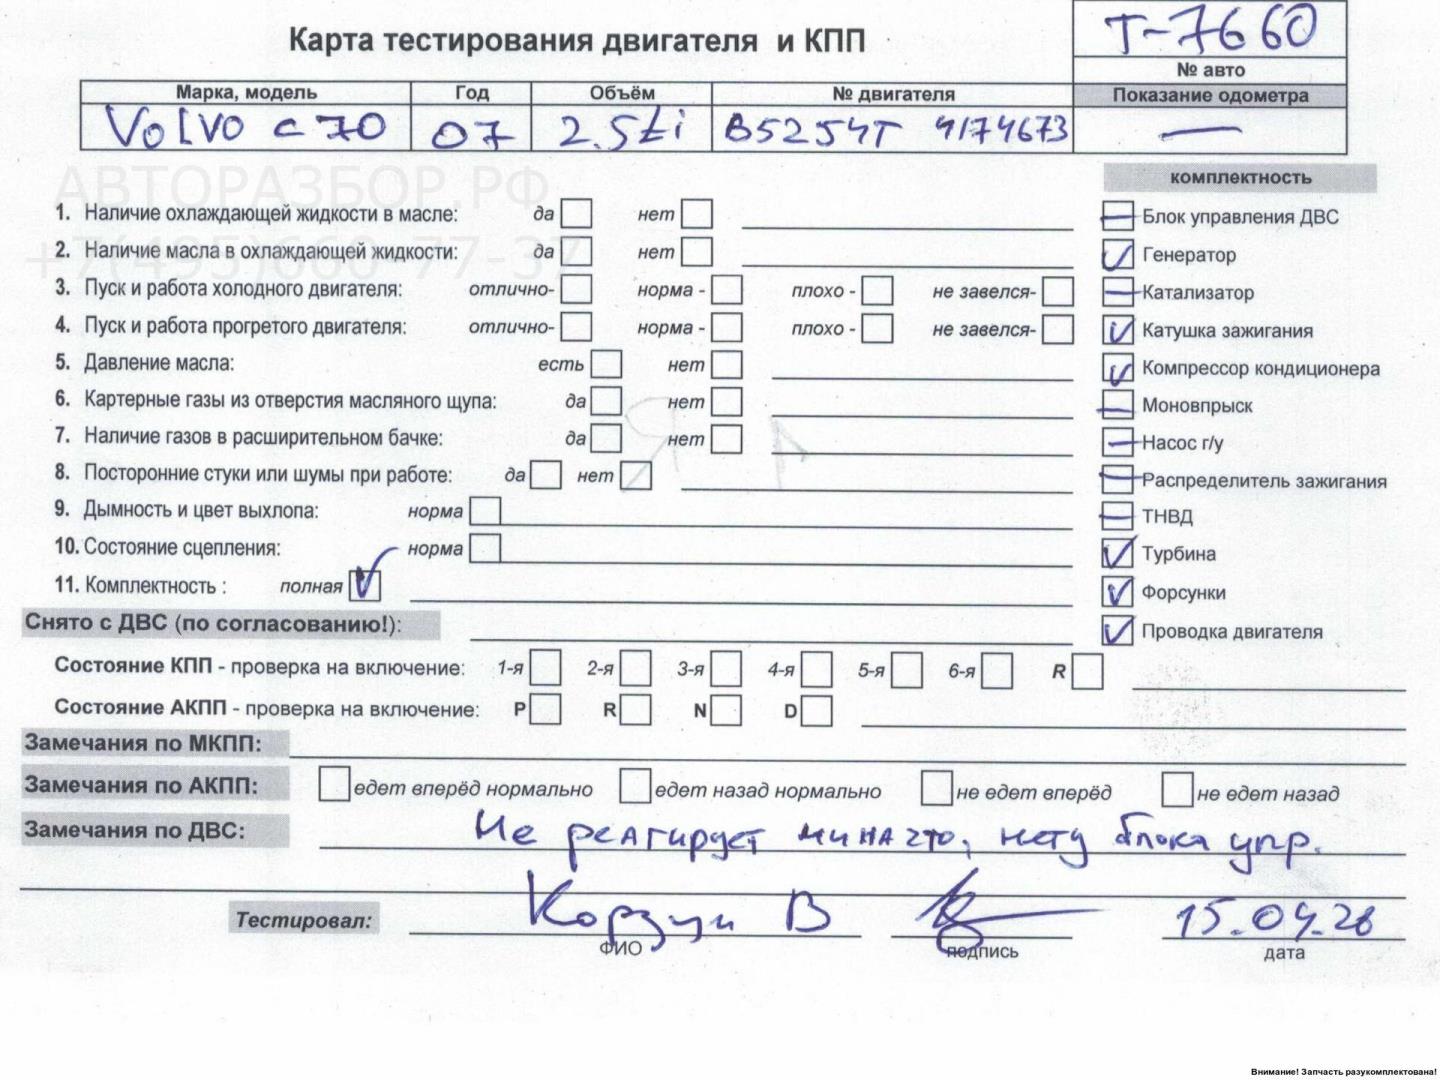 Карта тестирования двигателя и КПП
T-7660
№ авто
Марка, модель Год Объём № двигателя Показание одометра
Volvo c70 07 2.5ti B5254T 4174673 —
АВТОРАЗБОР.РФ
+7(495)660-77-37
комплектность
1. Наличие охлаждающей жидкости в масле: да нет
Блок управления ДВС
2. Наличие масла в охлаждающей жидкости: да нет
Генератор
3. Пуск и работа холодного двигателя: отлично- норма - плохо - не завелся-
Катализатор
4. Пуск и работа прогретого двигателя: отлично- норма - плохо - не завелся-
Катушка зажигания
5. Давление масла: есть нет
Компрессор кондиционера
6. Картерные газы из отверстия масляного щупа: да нет
Моновпрыск
7. Наличие газов в расширительном бачке: да нет
Насос г/у
8. Посторонние стуки или шумы при работе: да нет
Распределитель зажигания
9. Дымность и цвет выхлопа: норма
ТНВД
10. Состояние сцепления: норма
Турбина
11. Комплектность : полная
Форсунки
Снято с ДВС (по согласованию!):
Проводка двигателя
Состояние КПП - проверка на включение: 1-я 2-я 3-я 4-я 5-я 6-я R
Состояние АКПП - проверка на включение: P R N D
Замечания по МКПП:
Замечания по АКПП: едет вперёд нормально едет назад нормально не едет вперёд не едет назад
Замечания по ДВС: Не реагирует миначто, нету блока упр.
Тестировал: Корзун В 15.04.26
ФИО подпись дата
Внимание! Запчасть разукомплектована!